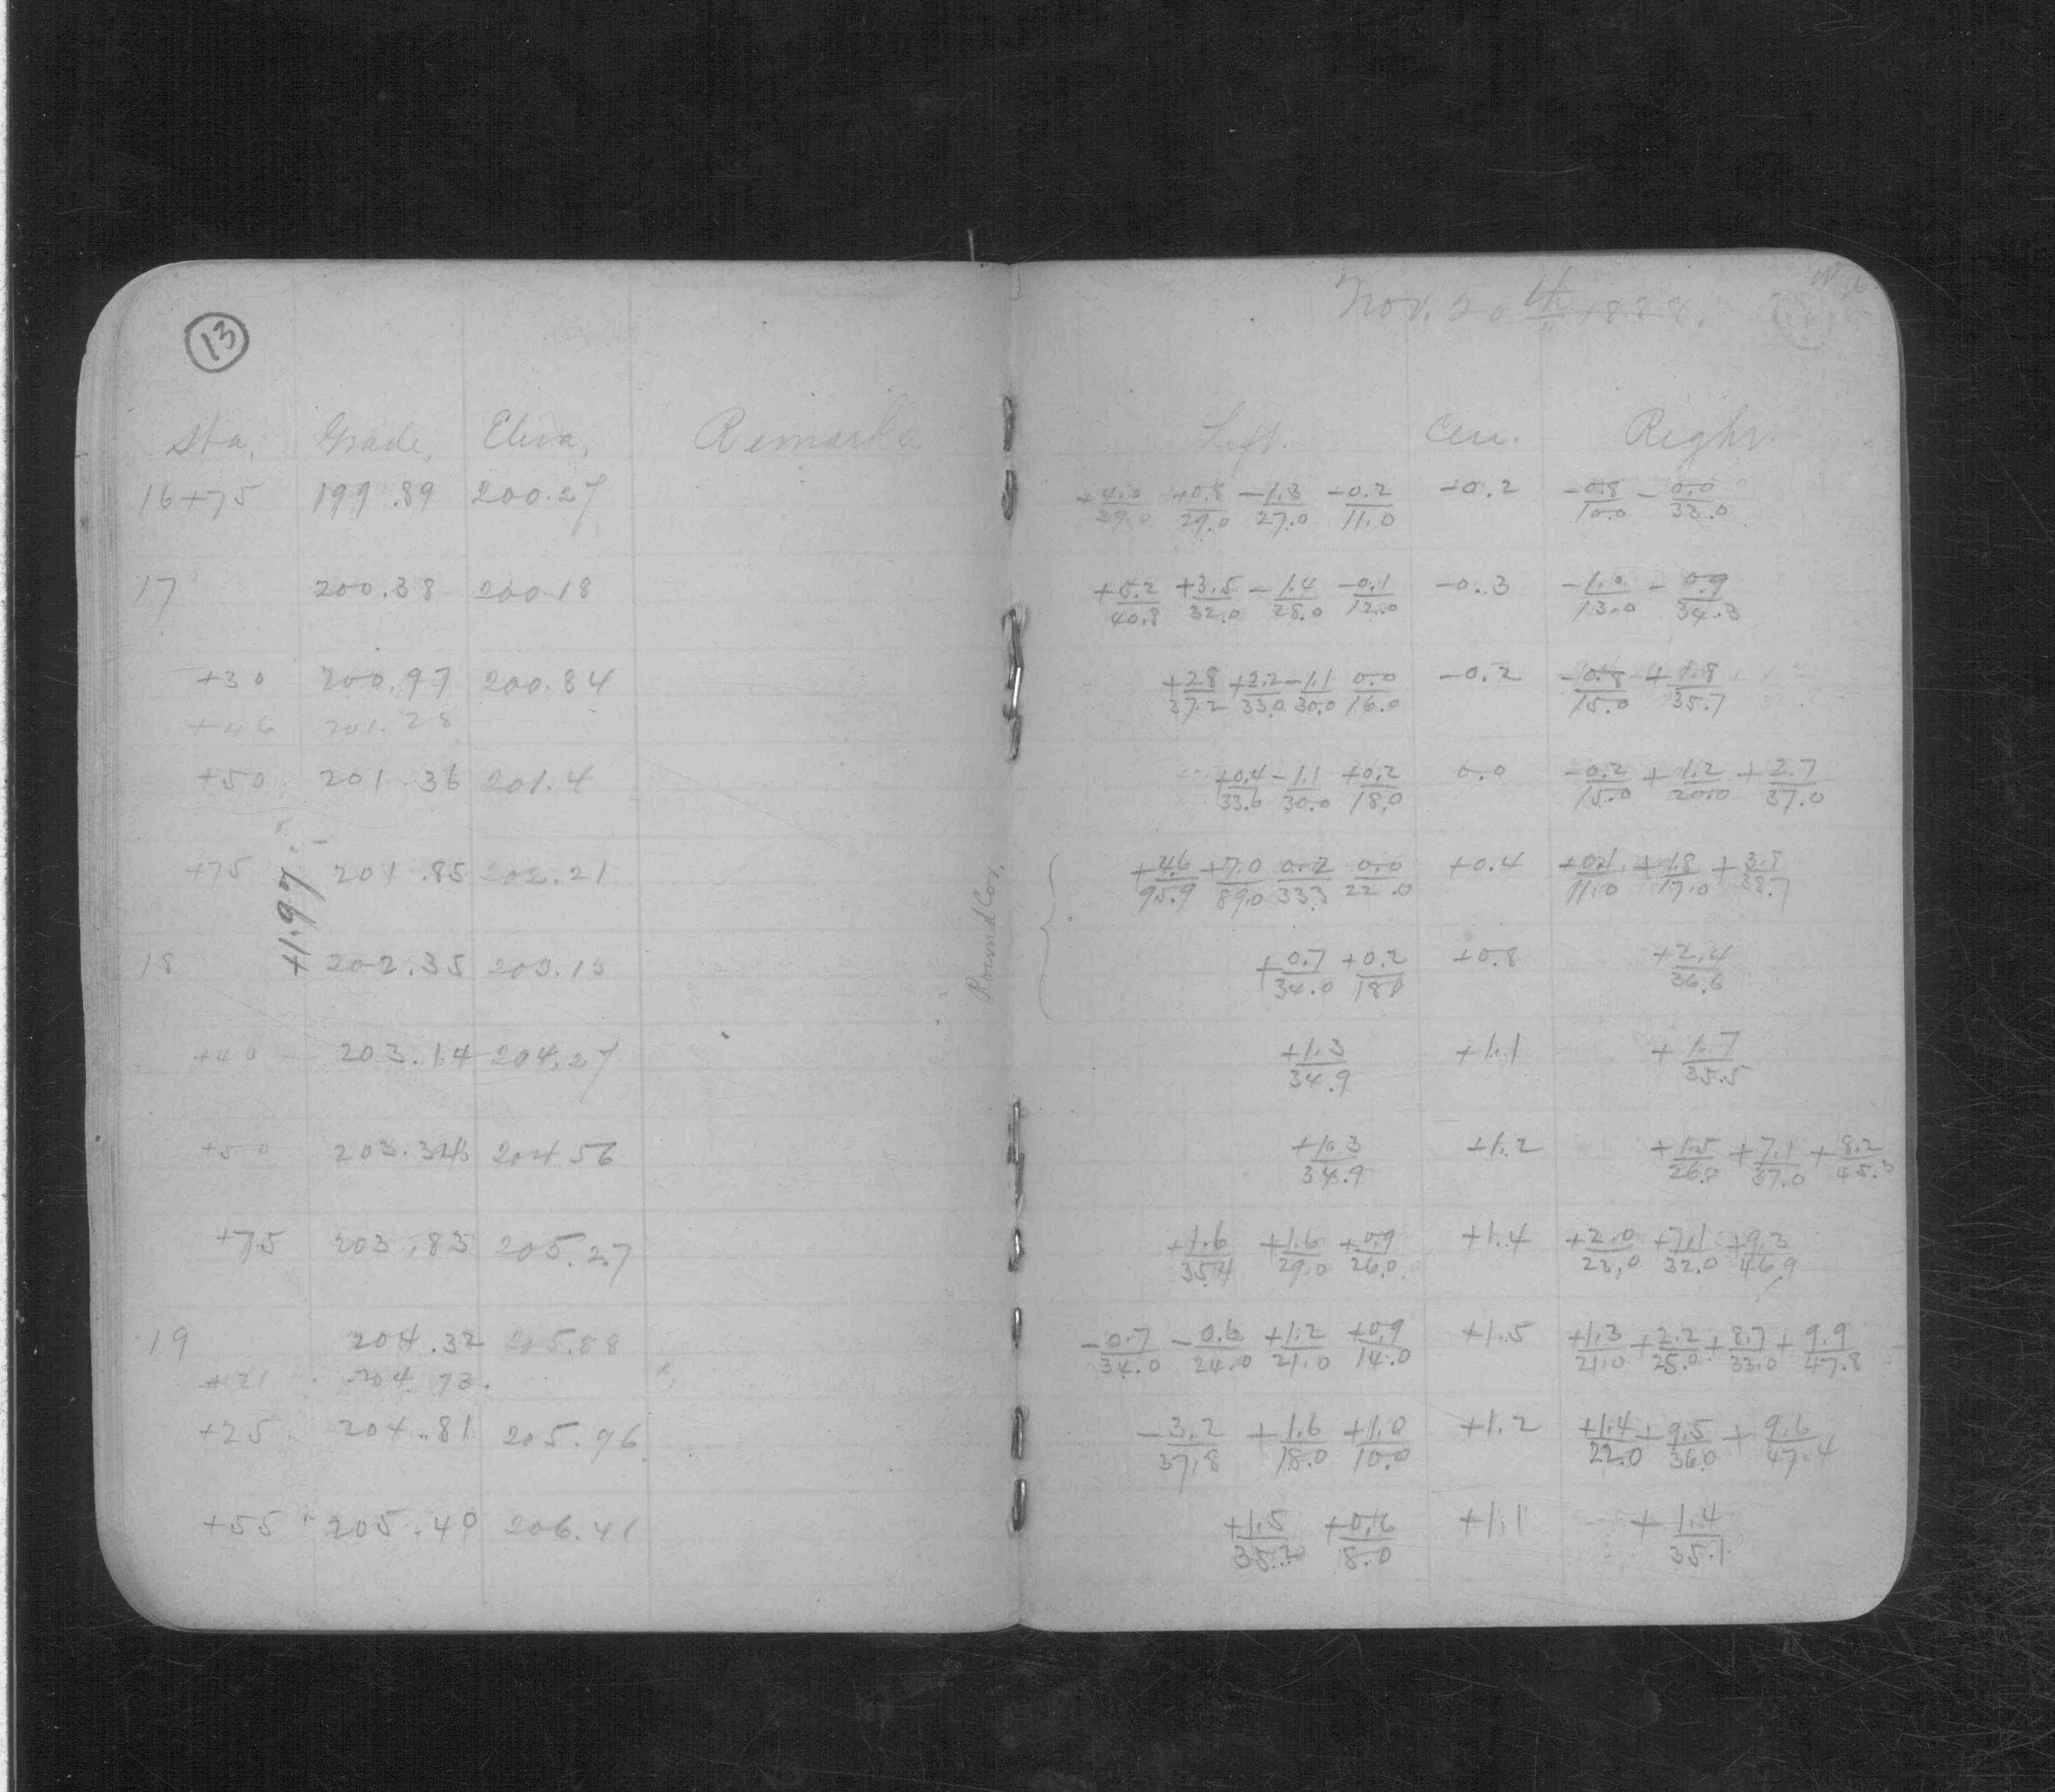 13
Nov. 20th 1888.
Sta. Grade, Eleva, Remarks Left. Cen. Right.
16+75 199.89 200.27 +4.0/39.0 +0.8/29.0 -1.3/27.0 -0.2/11.0 +0.2 -0.8/10.0 -0.0/33.0
17 200.38 200.18 +5.2/40.8 +3.5/32.0 -1.4/28.0 -0.1/12.0 -0.3 -1.0/13.0 -0.9/34.3
+30 200.97 200.84 +2.8/37.2 +2.2/33.0 -1.1/30.0 0.0/16.0 -0.2 -0.8/15.0 +1.8/35.7
+46 201.28
+50 201.36 201.4 +0.4/33.6 -1.1/30.0 +0.2/18.0 0.0 -0.2/15.0 +1.2/20.0 +2.7/37.0
+75 201.85 202.21 +4.6/95.9 +7.0/89.0 0.2/33.3 0.0/22.0 +0.4 +0.1/11.0 +1.8/17.0 +3.8/38.7
+1.97
Round Cor.
18 202.35 203.15 +0.7/34.0 +0.2/18.0 +0.8 +2.4/36.6
+40 203.14 204.27 +1.3/34.9 +1.1 +1.7/35.5
+50 203.34 204.56 +1.3/34.9 +1.2 +1.5/26.0 +7.1/37.0 +8.2/45.3
+75 203.83 205.27 +1.6/35.4 +1.6/29.0 +0.9/26.0 +1.4 +2.0/23.0 +7.1/32.0 +9.3/46.9
19 204.32 205.88 -0.7/34.0 -0.6/24.0 +1.2/21.0 +0.9/14.0 +1.5 +1.3/21.0 +2.2/25.0 +8.7/33.0 +9.9/47.8
+21 204.73
+25 204.81 205.96 -3.2/37.8 +1.6/18.0 +1.0/10.0 +1.2 +1.4/22.0 +9.5/36.0 +9.6/47.4
+55 205.40 206.41 +1.5/35.2 +0.6/18.0 +1.1 +1.4/35.1